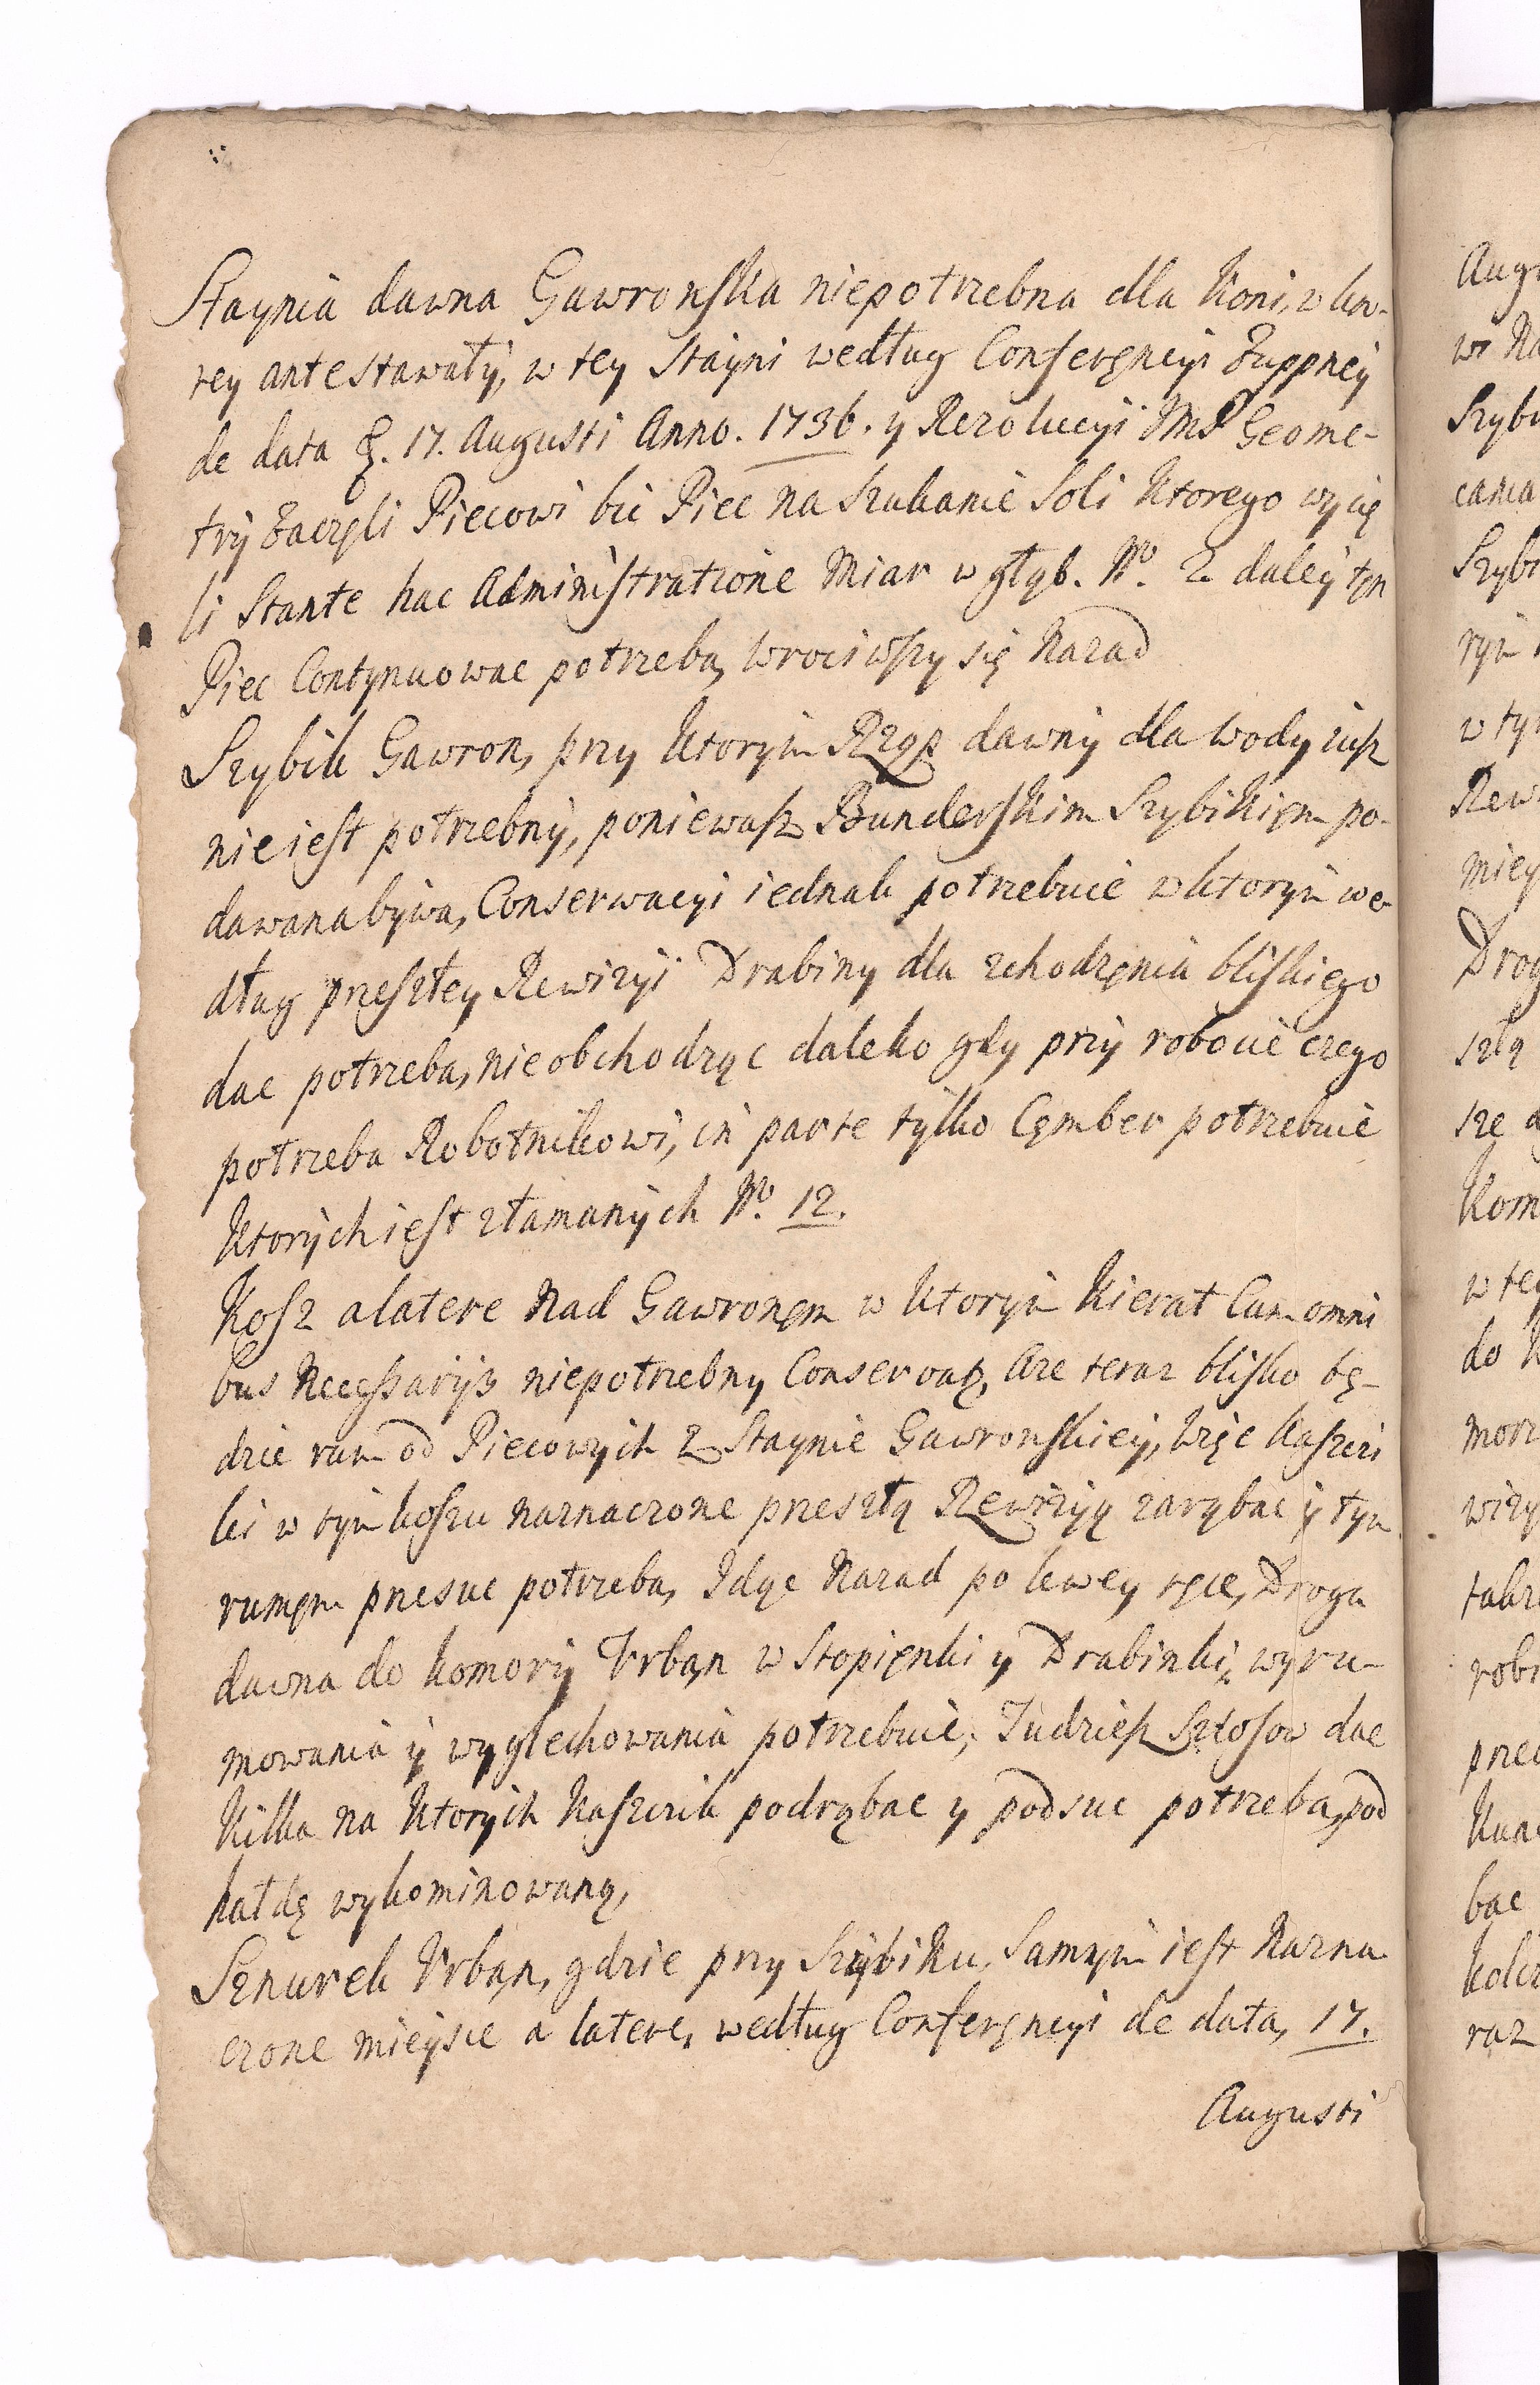 Staynia dawna Gawronska niepotrzebna dla Koni, w kto-
rey ante stawały, w tey Stayni według Conferęncyi Zuppney
de data 17. Augusti Anno. 1736. y Rezolucyi JmP Geome-
try Zaczęli Piecowi bić Piec na Szukanie Soli Ktorego wycię
li Stante hac Administratione Miar w głąb. No. 2 daley tęn
Piec Contynuowac potrzeba, wrociwszy się Nazad
Szybik Gawron, przy Ktorym Rząp dawny dla wody iusz
nie iest potrzebny, poniewasz Bunderskim Szybikięm po-
dawana bywa, Conserwacyi iednak potrzebuie w ktorym we-
dług preszłey Rewizyi Drabiny dla zchodzęnia bliskiego
dac potrzeba, nie obchodząc daleko gdy przy robocie czego
potrzeba Robotnikowi, in parte tylko Cęmber potrzebuie
Ktorych iest złamanych No. 12.
Kosz a latere Nad Gawronęm w Ktorym Kierat Cum omni
bus Necessarys niepotrzebny Conserwag, Aze teraz blisko bę-
dzie rum od Piecowych z Staynie Gawronskiey, więc Kaszczi
ki w tym koszu naznaczone preszłą Rewizyą zarąbac y tym
rumęm presuc potrzeba, Idąc Nazad po lewey ręce, Droga
dawna do komory Vrbąn w Stopięnki y Drabinki, wyru-
mowania y wyglechowania potrzebuie, Tudziesz Sztosow dac
Kilka na Ktorych Kaszczik podrąbac y podsuc potrzeba, pod
hałdę wykominowaną,
Sznurek Vrbąn, gdzie przy Szybiku, Samym iest Nazna
czone mieysce a latere, według Conferęncyi de data, 17.
Augusti